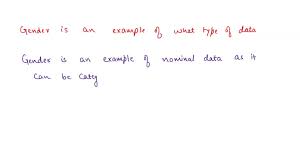 Gender is an example of what type of data
Gender is an example of nominal data as it
can be catg